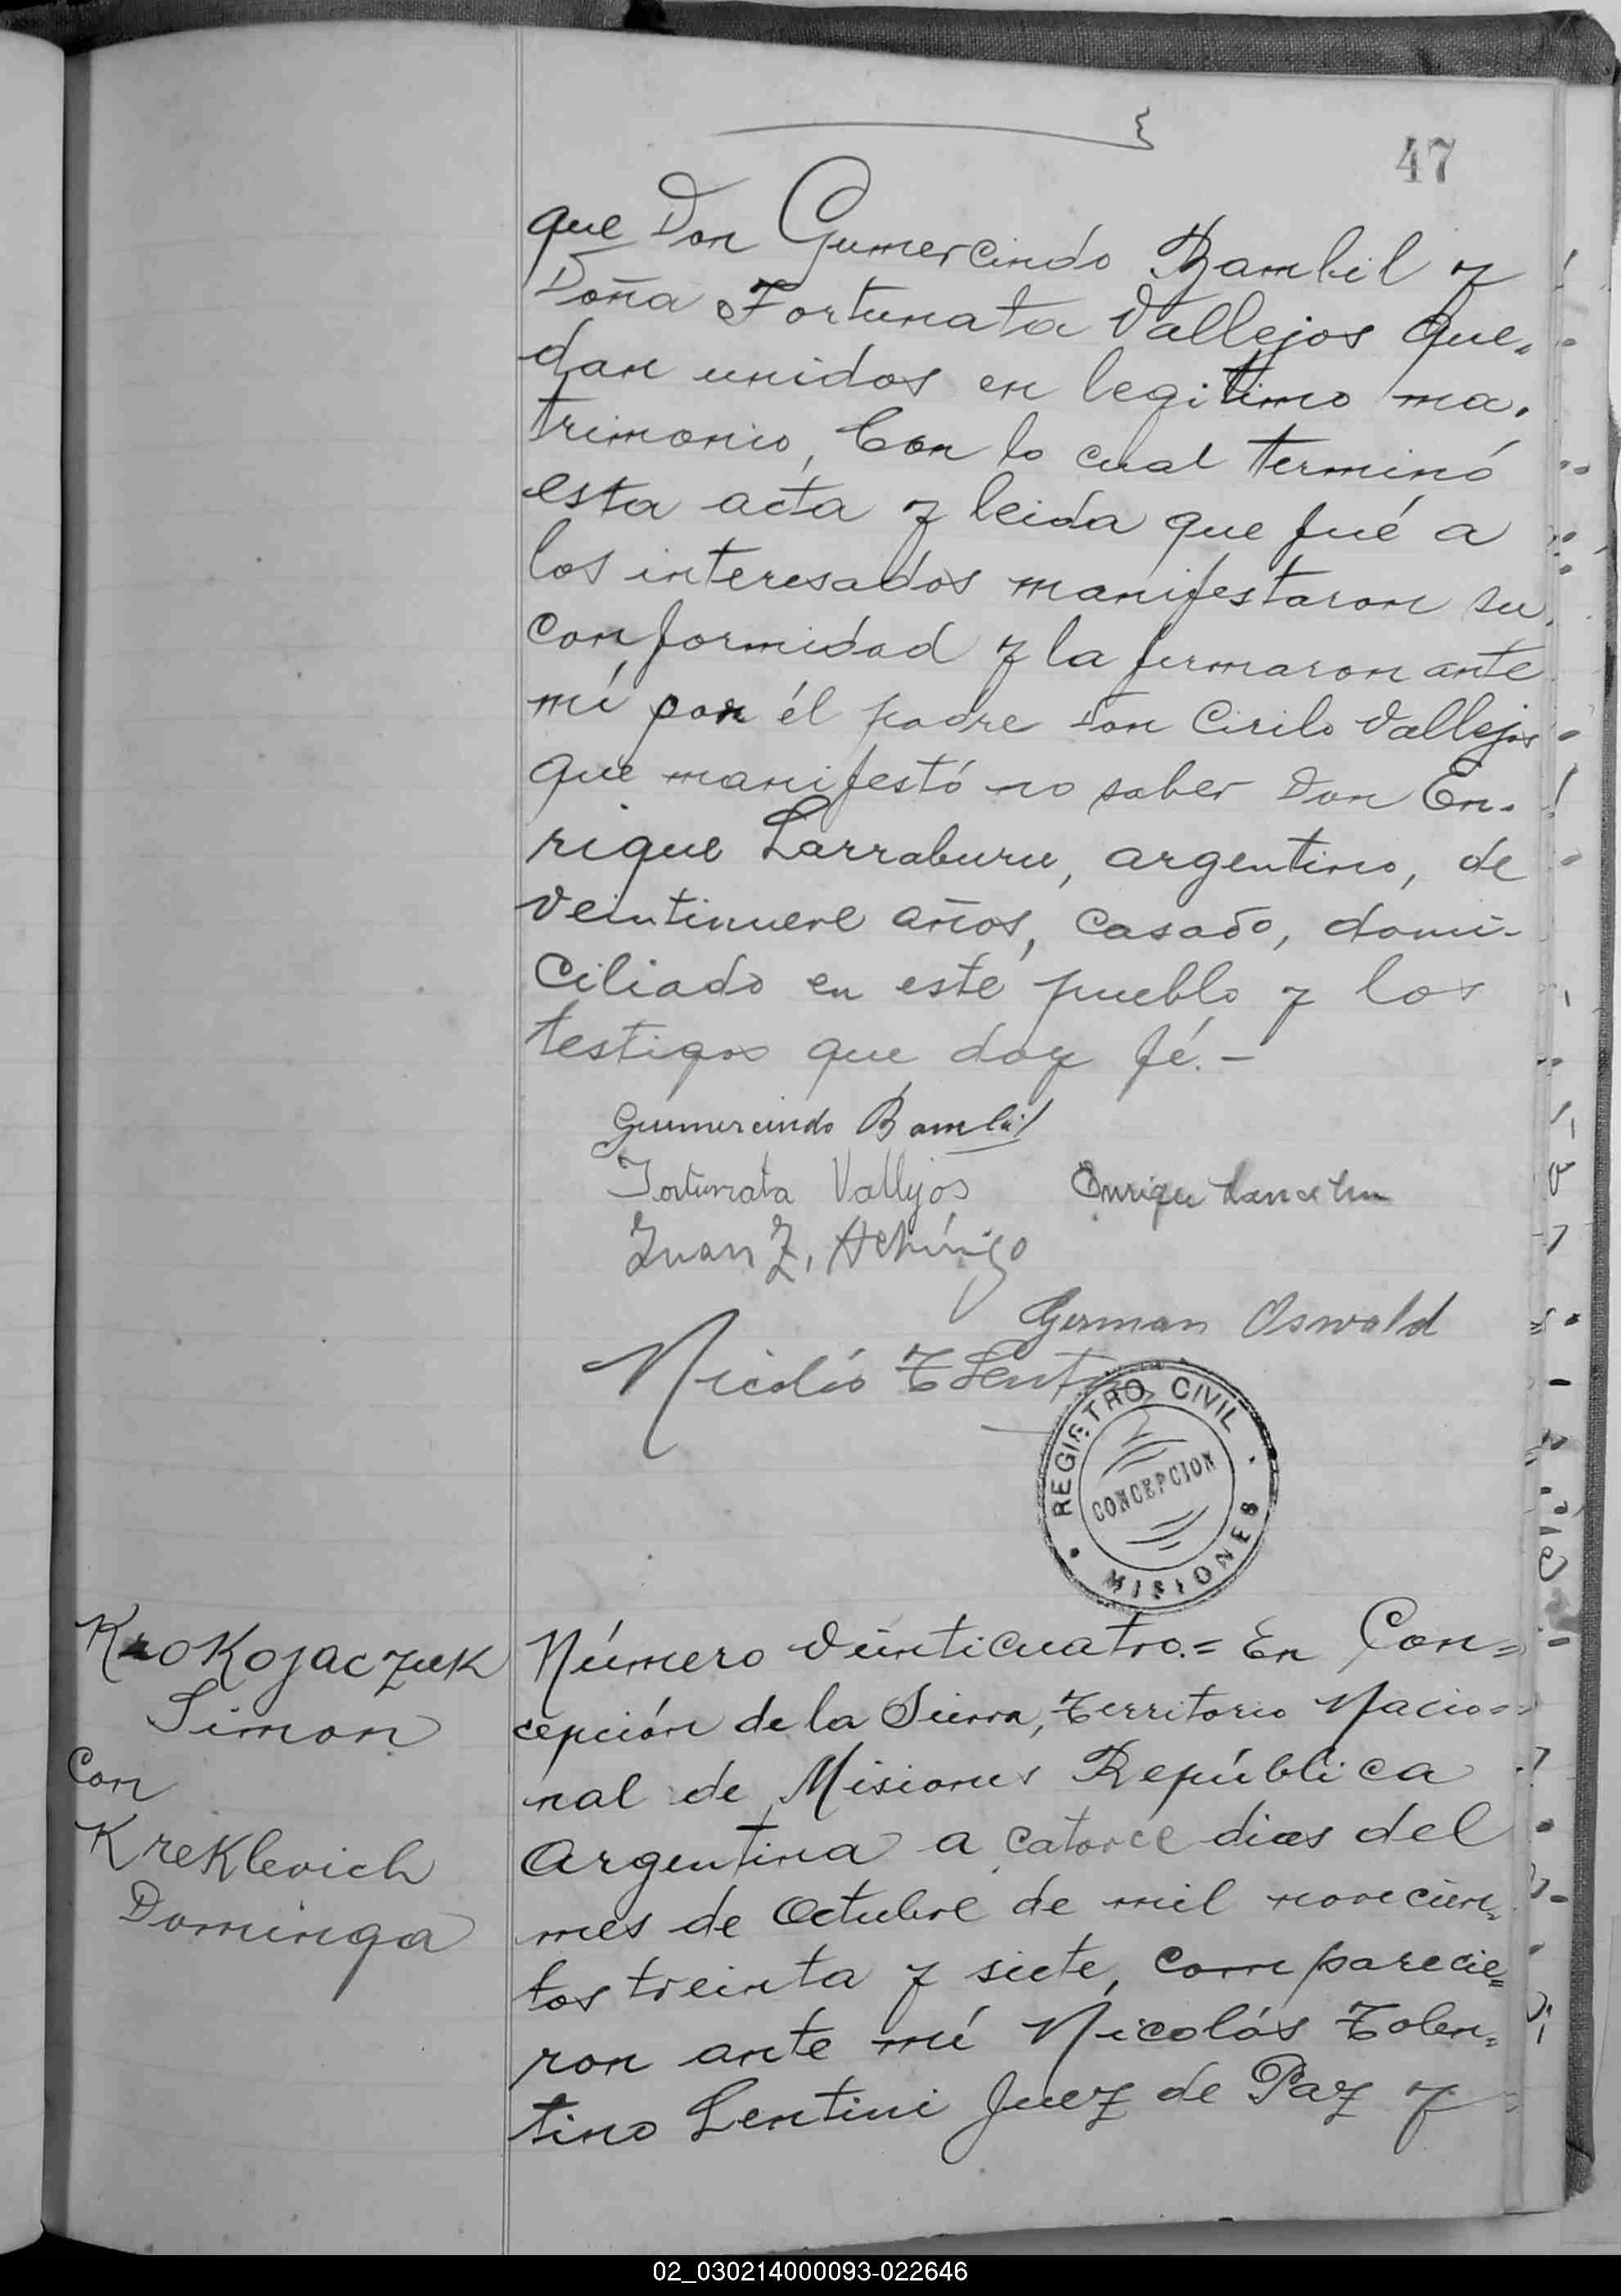 47
que Don Gumercindo Bambil y
Doña Fortunata Vallejos que-
dan unidos en legitimo ma-
trimonio, Con lo cual terminó
esta acta y leida que fué a
los interesados manifestaron su
conformidad y la firmaron ante
mí por él padre don Cirilo Vallejos
que manifestó no saber Don En-
rique Larraburu, argentino, de
veintinueve años, casado, domi-
ciliado en este pueblo y los
testigos que doy fé.-
Gumercindo Bambil
Fortunata Vallejos Enrique
Juan Z. Achinigo
German Oswald
Nicolás T Lentini
REGISTRO CIVIL
CONCEPCION
MISIONES
Krokojaczuk
Simon
Con
Kreklevich
Dominga
Número veinticuatro.= En Con=
cepción de la Sierra, Territorio Nacio=
nal de Misiones República
Argentina a catorce dias del
mes de Octubre de mil novecien=
tos treinta y siete, comparecie=
ron ante mí Nicolás Tolen=
tino Lentini Juez de Paz y
02_030214000093-022646